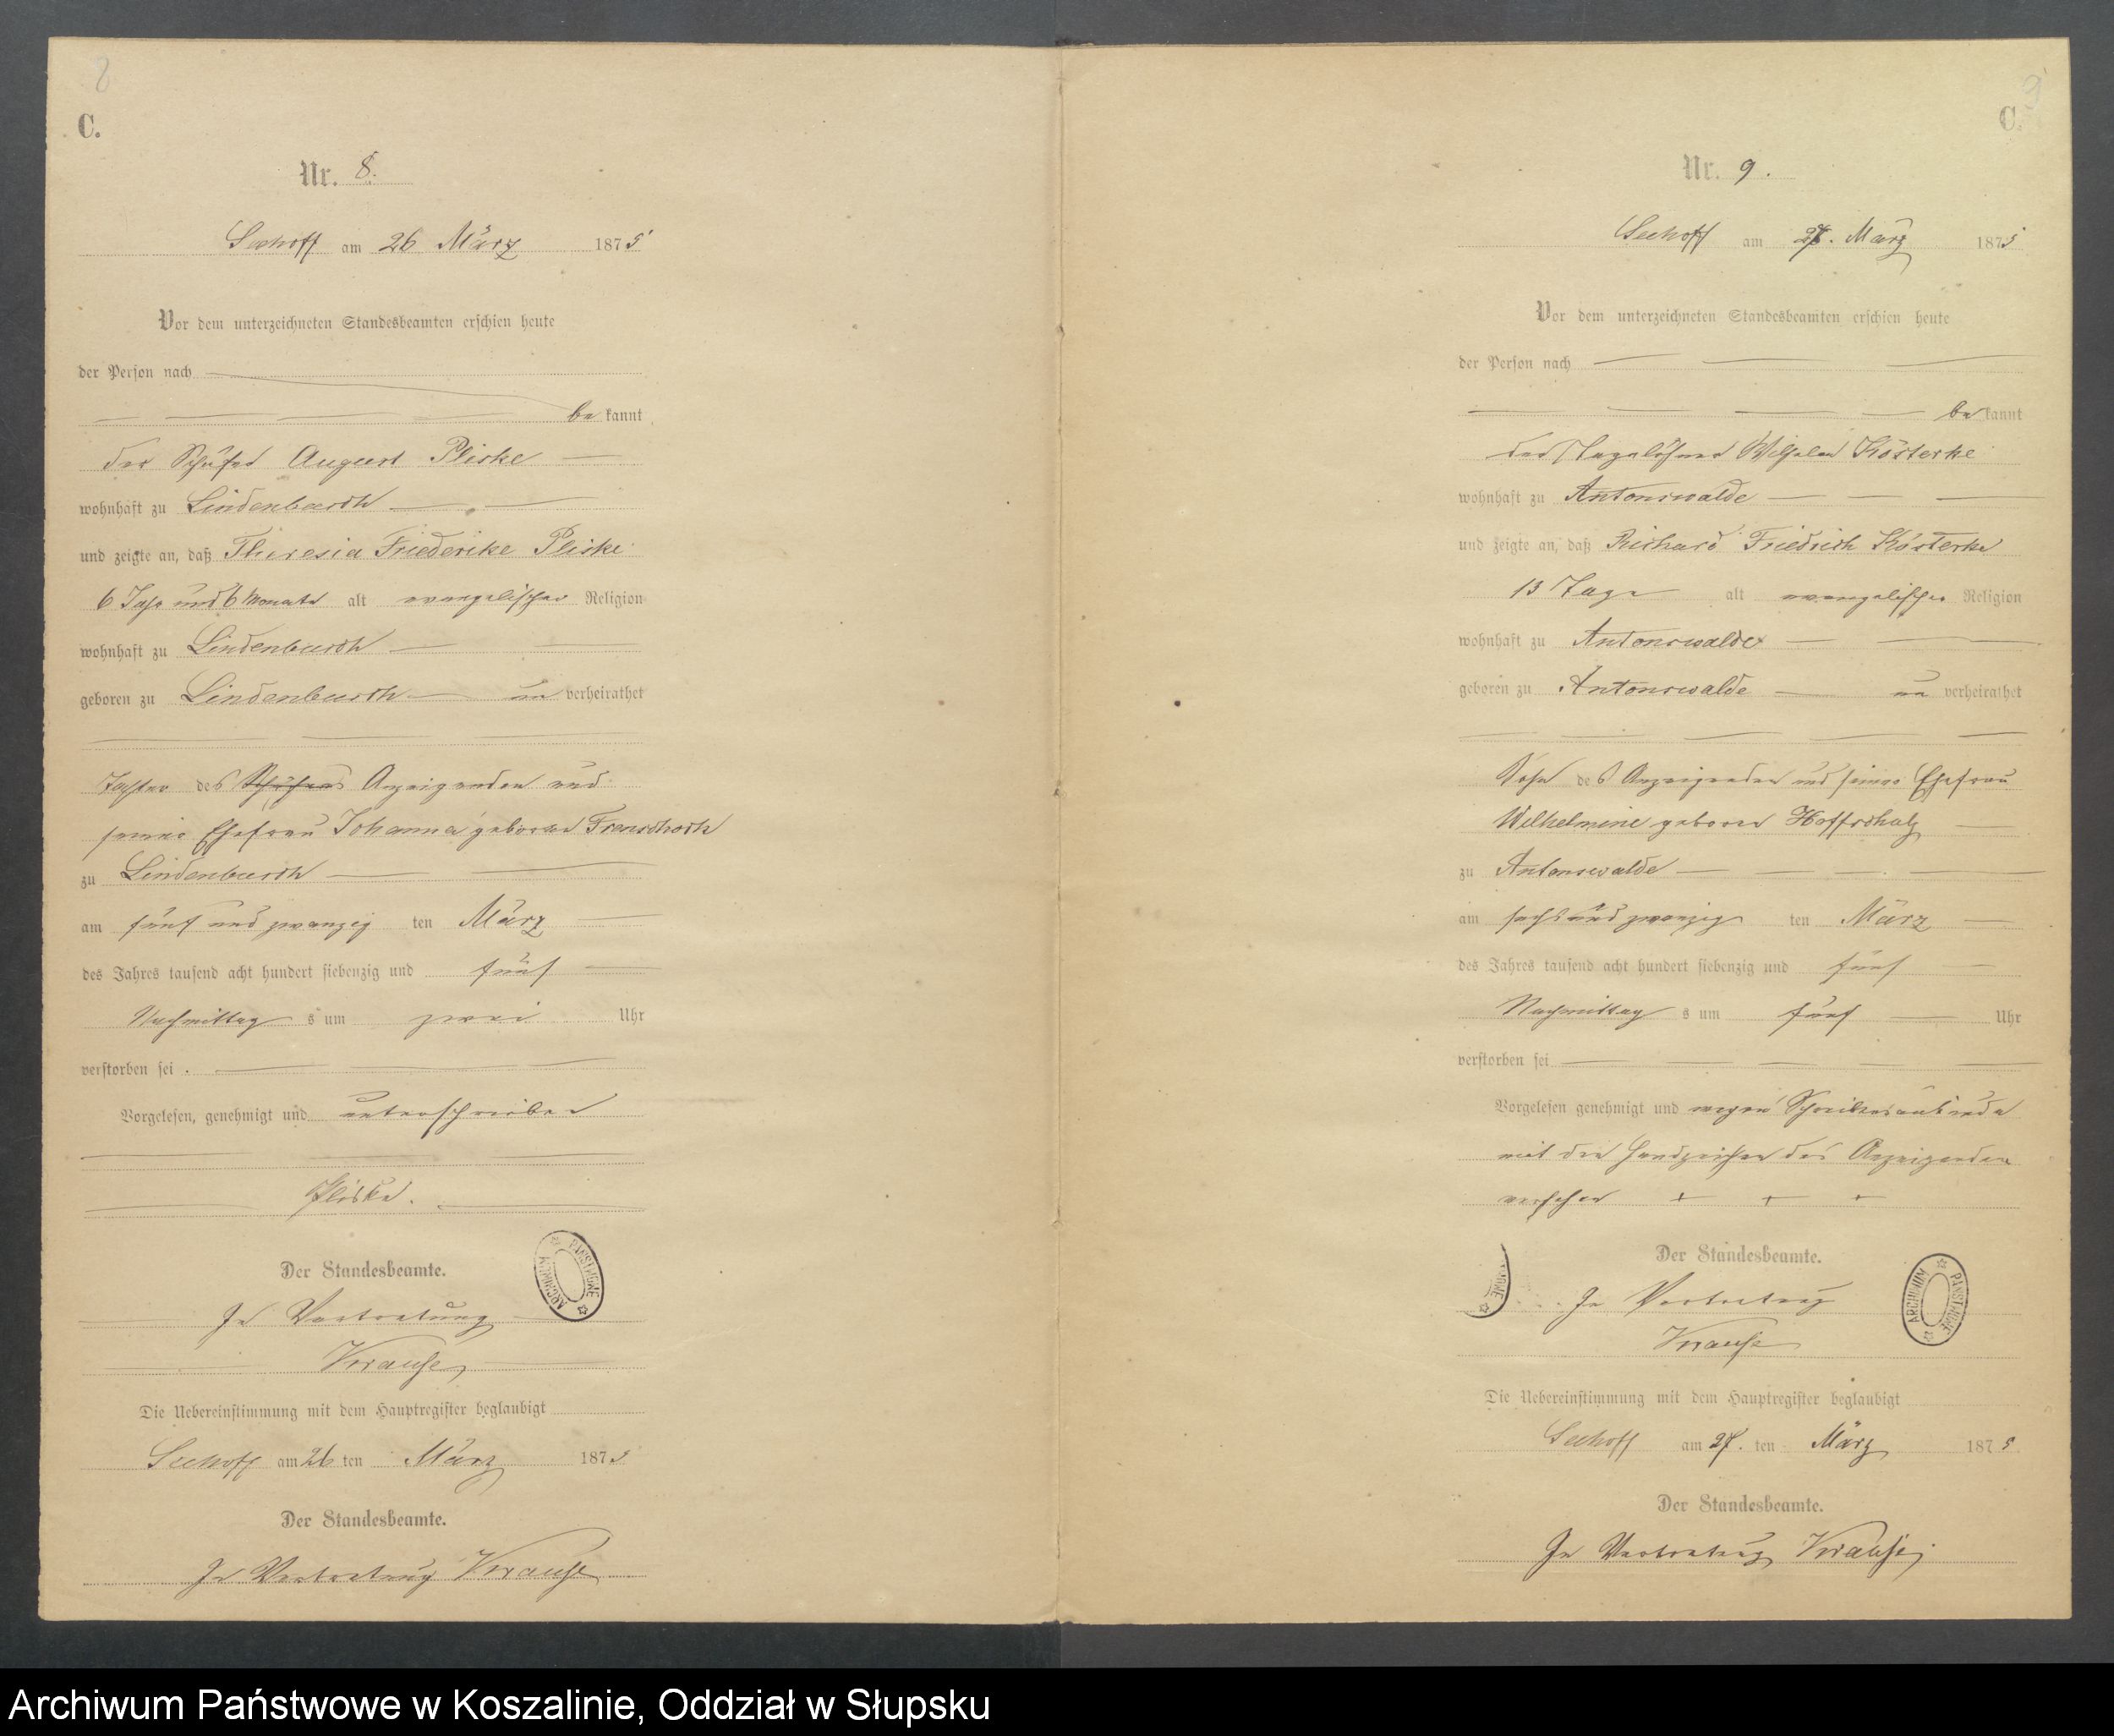 8
C.
Nr. 8.
Seehoff am 26 März 1875
Vor dem unterzeichneten Standesbeamten erschien heute
der Person nach
be kannt
der Schäfer August Pliske
wohnhaft zu Lindenbusch
und zeigte an, daß Theresia Friederike Pliske
6 Jahr und 6 Monate alt evangelischer Religion
wohnhaft zu Lindenbusch
geboren zu Lindenbusch un verheirathet
Tochter des Schäfers Anzeigenden und
seiner Ehefrau Johanna geborene
zu Lindenbusch
am fünf und zwanzig ten März
des Jahres tausend acht hundert siebenzig und fünf
Nachmittag s um zwei Uhr
verstorben sei.
Vorgelesen, genehmigt und unterschrieben
Pliske.
Der Standesbeamte.
ARCHIWUM PAŃSTWOWE
In Vertretung
Krause
Die Uebereinstimmung mit dem Hauptregister beglaubigt
Seehoff am 26 ten März 1875
Der Standesbeamte.
In Vertretung Krause
9
C.
Nr. 9.
Seehoff am 27. März 1875
Vor dem unterzeichneten Standesbeamten erschien heute
der Person nach
be kannt
der Tagelöhner Wilhelm Kösterke
wohnhaft zu Antonswalde
und zeigte an, daß Richard Friedrich Kösterke
13 Tage alt evangelischer Religion
wohnhaft zu Antonswalde
geboren zu Antonswalde un verheirathet
Sohn des Anzeigenden und seiner Ehefrau
Wilhelmine geboren Hoffschulz
zu Antonswalde
am sechs und zwanzig ten März
des Jahres tausend acht hundert siebenzig und fünf
Nachmittag s um fünf Uhr
verstorben sei
Vorgelesen genehmigt und wegen Schreibensunkunde
mit den Handzeichen des Anzeigenden
versehen + + +
Der Standesbeamte.
ARCHIWUM PAŃSTWOWE
In Vertretung
Krause
Die Uebereinstimmung mit dem Hauptregister beglaubigt
Seehoff am 27. ten März 1875
Der Standesbeamte.
In Vertretung Krause
Archiwum Państwowe w Koszalinie, Oddział w Słupsku